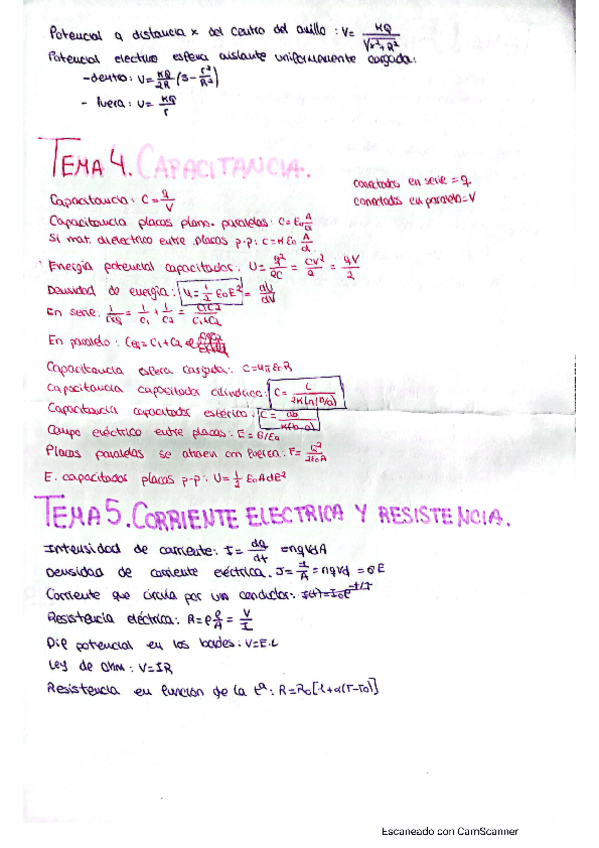 Potencial a distancia x del centro del anillo : V= KQ/√x²+R²
Potencial electrico esfera aislante uniformemente cargada:
- dentro : V= KQ/2R (3 - r²/R²)
- fuera : V= KQ/r
TEMA 4. CAPACITANCIA.
conectados en serie = q.
conectados en paralelo = V
Capacitancia : C = q/V
Capacitancia placas plano-paralelas : C= ε₀ A/d
Si mat. dieléctrico entre placas p-p : C = K ε₀ A/d
Energía potencial capacitador : U = q²/2C = CV²/2 = qV/2
Densidad de energía : u = 1/2 ε₀E² = dU/dV
En serie. 1/Ceq = 1/C₁ + 1/C₂ = C₁C₂/C₁+C₂
En paralelo : Ceq = C₁+C₂
Capacitancia esfera cargada : C=4πε₀R
Capacitancia capacitador cilíndrico : C = L/2K ln(b/a)
Capacitancia capacitador esférico : C = ab/K(b-a)
Campo eléctrico entre placas : E = σ/ε₀
Placas paralelas se atraen con fuerza : F= Q²/2ε₀A
E. capacitador placas p-p : U = 1/2 ε₀AdE²
TEMA 5. CORRIENTE ELECTRICA Y RESISTENCIA.
Intensidad de corriente : I = dq/dt = nqVdA
Densidad de corriente eléctrica. J = I/A = nqVd = σE
Corriente que circula por un conductor : I(t)=I₀e^-t/T
Resistencia eléctrica : R = ρ l/A = V/I
Dif potencial en los bordes : V=E.L
Ley de ohm : V=IR
Resistencia en función de la tª : R=R₀[1+α(T-T₀)]
Escaneado con CamScanner